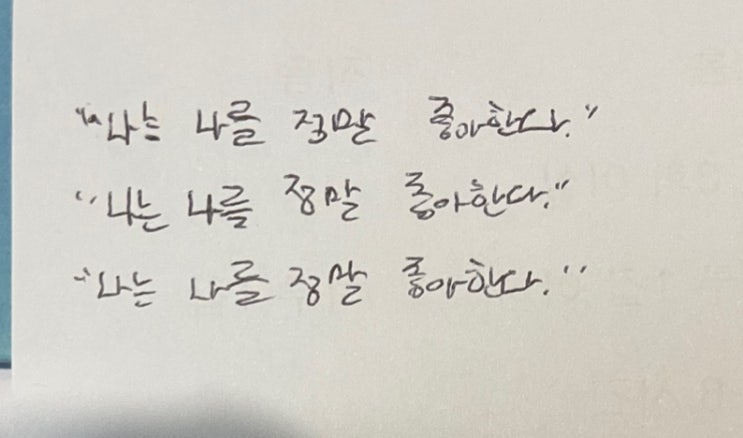 "나는 나를 정말 좋아한다."
"나는 나를 정말 좋아한다."
"나는 나를 정말 좋아한다."